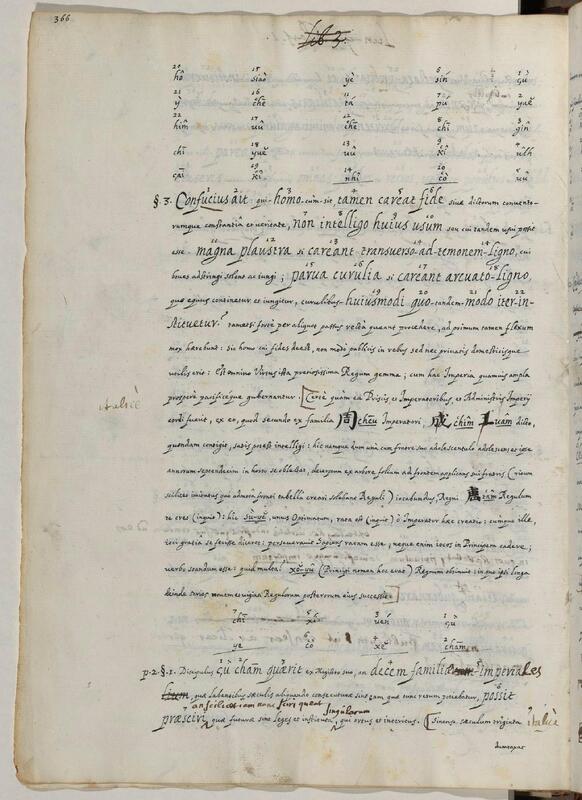 366
lib 3.
20 hô 15 siaò yè 6 sín 1 çù
21 ŷ 16 chē 11 tá 7 pú 2 yuĕ
22 hîm 17 uû 12 chē 8 chī 3 gîn
chī 18 yuĕ 13 uû 9 kî 4 ulh
çāi 19 kî 14 nhî 10 cò 5 uû
§ 3. Confucius ait: qui homo cum sit, tamen careat fide sivè dictorum conventorumque
constantiâ et veritate, non intelligo huius usum seu cui tandem usui possit
esse. magna plaustra si careant transverso ad temonem ligno, cui
boves adstringi solent ac iungi; parva curulia si careant arcuato ligno,
quo equus continetur et iungitur, curulibus huiusmodi quo tandem modo iter in-
stituetur? tametsi fortè per aliquot passus rectà queant procedere, ad primum tamen flexum
mox haerebunt: sic homo cui fides deest, non modò publicis in rebus sed nec privatis domesticisque
utilis erit: Est omnino Virtus ista pretiosissima Regum gemma; cum hac Imperia quamvis ampla
prosperè pacificèque gubernantur. Certè quàm ea Priscis et Imperatoribus et Administris Imperij
italicè
cordi fuerit, ex eo, quod secundo ex familia 周 cheū Imperatori, 成 chîm 王 uâm dicto,
quondam contigit, satis potest intelligi: hic namque dum unà cum fratre suo adolescentulo adolescens et ipse
annorum septendecim in horto se oblectat, decerptum ex arbore folium ad frontem applicans sui fratris (ritum
scilicet imitatus quo admotâ fronti tabellâ creari solebant Reguli) iocabundus, Regni 唐 tâm Regulum
te creo (inquit): hic unus Optimatum, rata est (inquit) ô Imperator haec creatio: cumque ille,
ioci gratia se fecisse diceret: perseveravit Sapiens ratam esse, neque enim iocos in Principem cadere;
verbo standum esse: quid multa? xŏ yû (Principi nomen hoc erat) Regnum obtinuit: in quo ipsi longa
deinde series Regulorum posterorum eius successit.
7 chī 5 xí 3 uén 1 çù
yè 6 cò 4 xĕ 2 chām
p. 2. §. 1. Discipulus çù chām quaerit ex Magistro suo, an decem familiae imperiales
quae labentibus saeculis aliquando consecuturae sint eam quae tunc rerum potiebatur, possit
an scilicet iam nunc sciri queat singularum
praesciri quae futurae sint leges et instituta, qui ortus et interitus. Sinense saeculum triginta italicè
dumtaxat